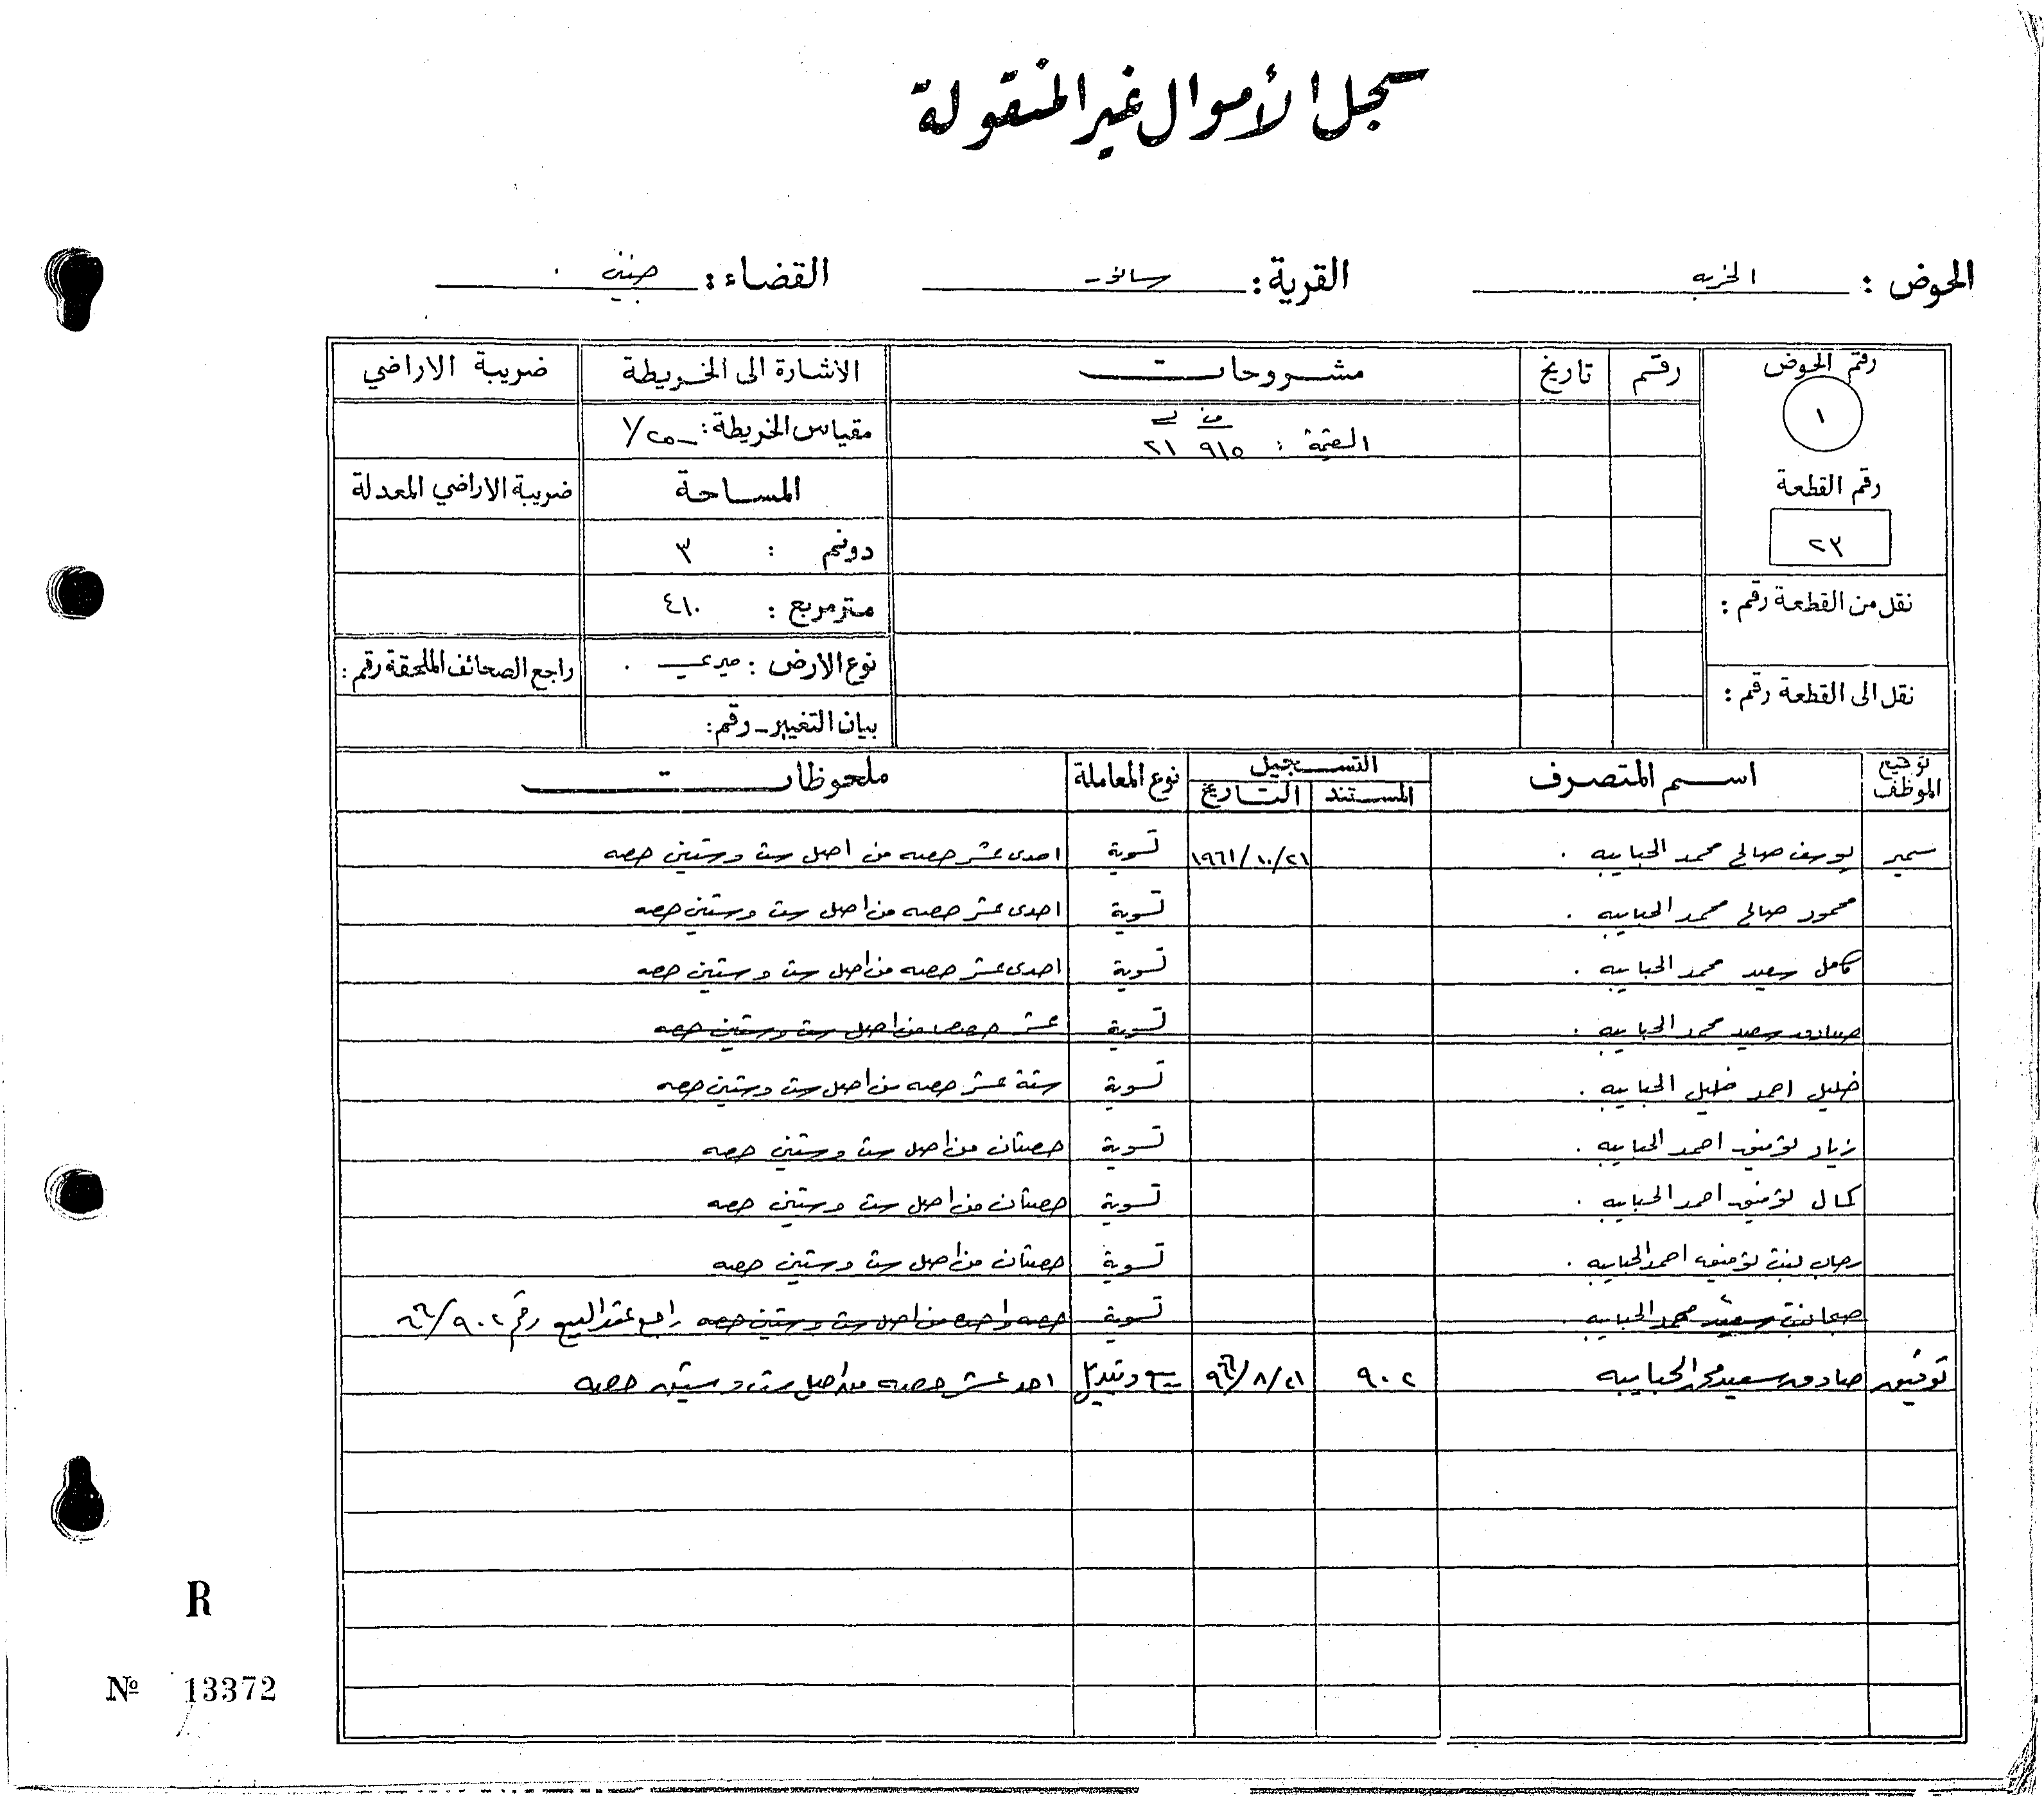 سجل الأموال غير المنقولة
الحوض : الخربه القرية : سانور القضاء : جنين
رقم الحوض رقم تاريخ مشروحات الاشارة الى الخريطة ضريبة الاراضي
١ القيمة : ٩١٥ ٢١ مقياس الخريطة : ١/٢٥٠٠
رقم القطعة المساحة ضريبة الاراضي المعدلة
٢٣ دونم : ٣
نقل من القطعة رقم : متر مربع : ٤١٠
نوع الارض : ميري راجع الصحائف الملحقة رقم :
نقل الى القطعة رقم : بيان التغيير - رقم :
توقيع الموظف اسم المتصرف التسجيل نوع المعاملة ملحوظات
المستند التاريخ
سمير يوسف صالح محمد الحبايبه . ٢١/١٠/١٩٦١ تسوية احدى عشر حصه من اصل ست وستين حصه
محمود صالح محمد الحبايبه . تسوية احدى عشر حصه من اصل ست وستين حصه
كامل سعيد محمد الحبايبه . تسوية احدى عشر حصه من اصل ست وستين حصه
صادق سعيد محمد الحبايبه . تسوية عشر حصص من اصل ست وستين حصه
خليل احمد خليل الحبايبه . تسوية ستة عشر حصه من اصل ست وستين حصه
زياد توفيق احمد الحبايبه . تسوية حصتان من اصل ست وستين حصه
كمال توفيق احمد الحبايبه . تسوية حصتان من اصل ست وستين حصه
رحاب بنت توفيق احمد الحبايبه . تسوية حصتان من اصل ست وستين حصه
بنت سعيد محمد الحبايبه . تسوية حصه واحده من اصل ست وستين حصه راجع عقد البيع رقم ٩٠٢/٦٦
توفيق صادق سعيد محمد الحبايبه ٩٠٢ ٢١/٨/٩٦٦ بيع وتبديل احد عشر حصه من اصل ست وستين حصه
R
Nº 13372